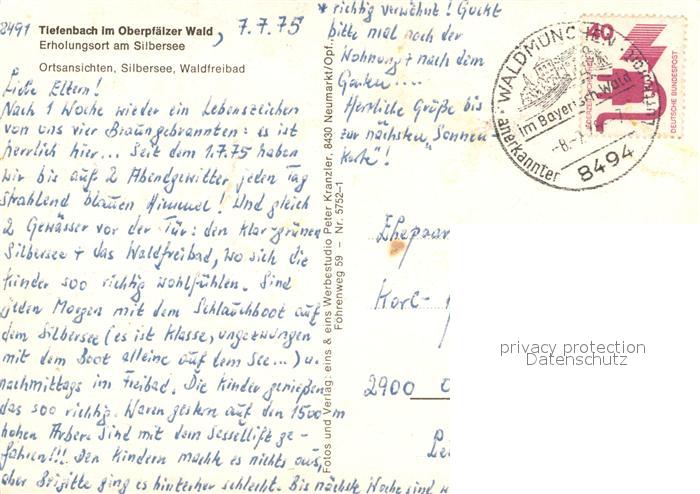 8491 Tiefenbach im Oberpfälzer Wald, 7.7.75
Erholungsort am Silbersee
Ortsansichten, Silbersee, Waldfreibad
Liebe Eltern!
Nach 1 Woche wieder ein Lebenszeichen
von uns vier Braungebrannten: es ist
herrlich hier... Seit dem 1.7.75 haben
wir bis auf 2 Abendgewitter jeden Tag
strahlend blauen Himmel! Und gleich
2 Gewässer vor der Tür: den klar-grünen
Silbersee + das Waldfreibad, wo sich die
Kinder soo richtig wohlfühlen. Sind
jeden Morgen mit dem Schlauchboot auf
dem Silbersee (es ist Klasse, ungezwungen
mit dem Boot alleine auf dem See...) u.
nachmittags im Freibad. Die Kinder genießen
das soo richtig. Waren gestern auf den 1500 m
hohen Arber. Sind mit dem Sessellift ge-
fahren!!! Den Kindern machte es nichts aus,
aber Brigitte ging es hinterher schlecht. Bis nächste Woche sind w
*richtig verwöhnt! Guckt
bitte mal nach der
Wohnung + nach dem
Garten...
Herzliche Grüße bis
zur nächsten "Sonnen-
karte"!
Fotos und Verlag: eins & eins Werbestudio Peter Kranzler, 8430 Neumarkt/Opf.
Föhrenweg 59 – Nr. 5752-1
WALDMÜNCHEN
im Bayerisch. Wald
anerkannter
-8.-7.
8494
40
DEUTSCHE BUNDESPOST
Ehepaar
Karl-
2900 O
privacy protection
Datenschutz